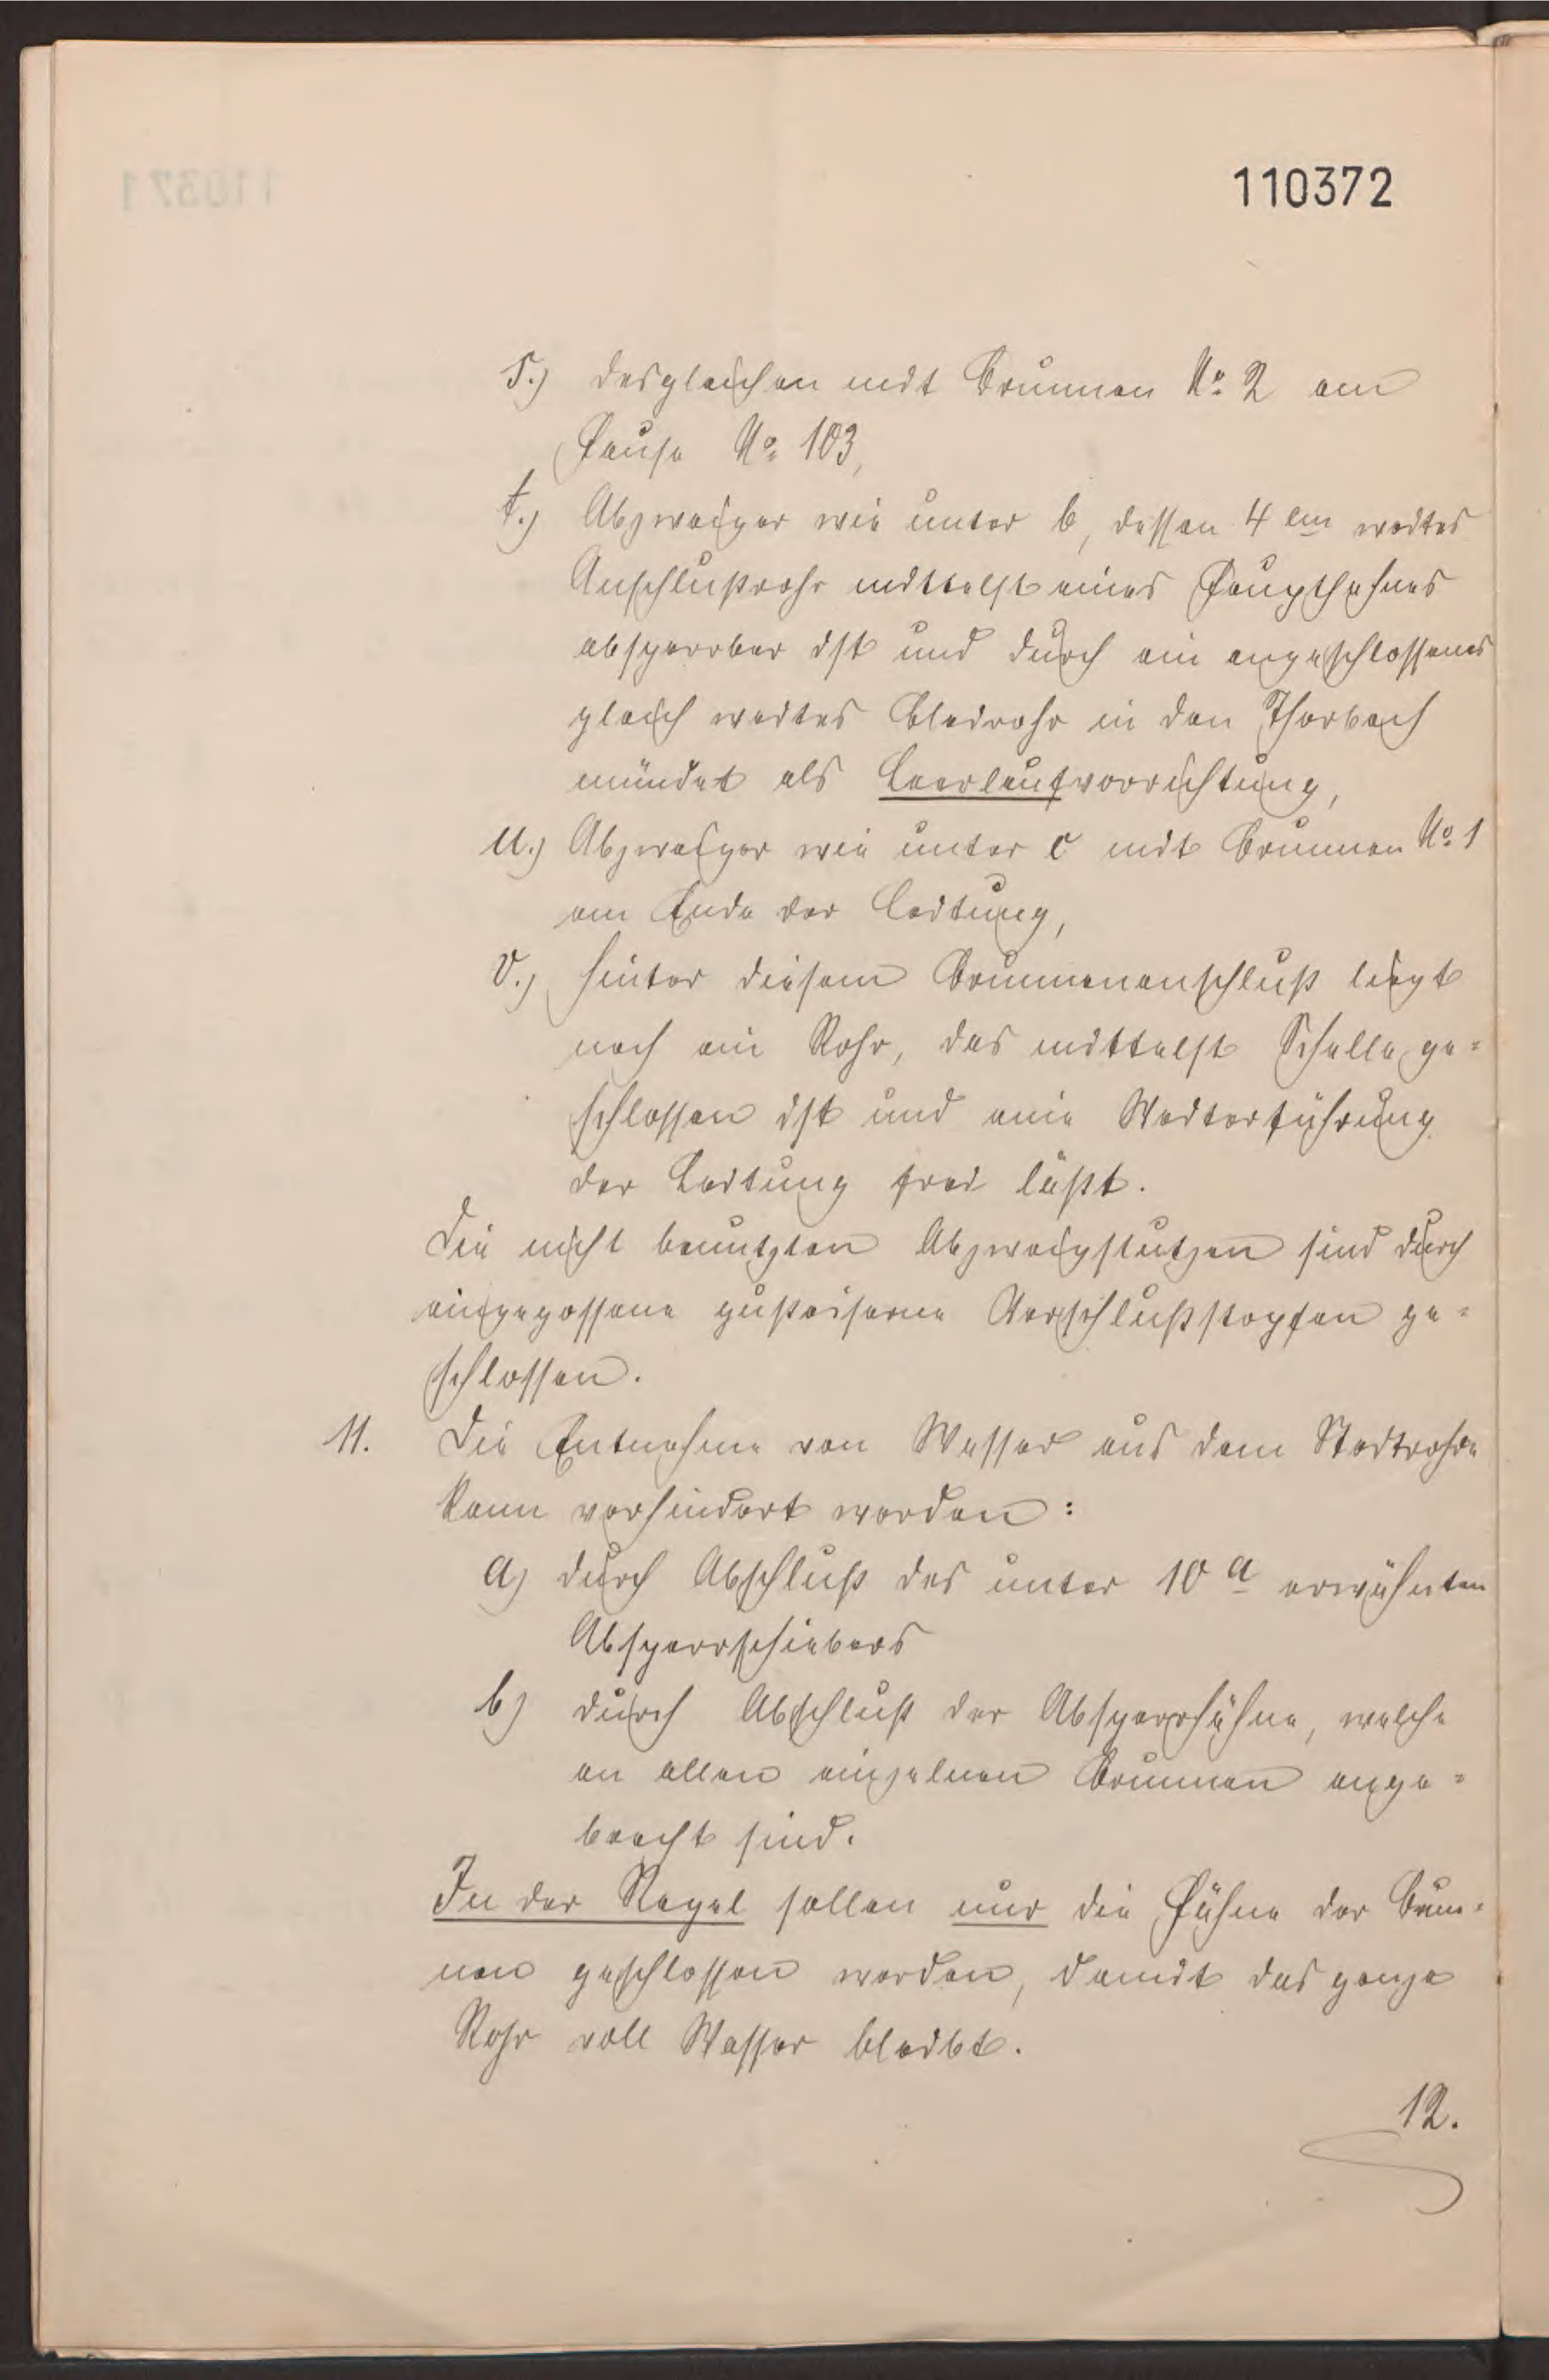 110372
s.) desgleichen mit Brunnen No. 2 am
Hause No. 103,
t.) Abzweiger wie unter b, dessen 4 cm weites
Anschlußrohr mittelst eines Haupthahnes
absperrbar ist und durch ein angeschlossenes
gleich weites Bleirohr in den Thorbach
mündet als Leerlaufvorrichtung,
u.) Abzweiger wie unter c mit Brunnen No. 1
am Ende der Leitung,
v.) hinter diesem Brunnenanschluß liegt
noch ein Rohr, das mittelst Schelle ge=
schlossen ist und eine Weiterführung
der Leitung frei läßt.
Die nicht benutzten Abzweigstutzen sind durch
eingegossene gußeiserne Verschlußstopfen ge=
schlossen.
11. Die Entnahme von Wasser aus dem Stadtrohre
kann verhindert werden:
a) durch Abschluß des unter 10 a erwähnten
Absperrschiebers
b) durch Abschluß der Absperrhähne, welche
an allen einzelnen Brunnen ange=
bracht sind.
In der Regel sollen nur die Hähne der Brun=
nen geschlossen werden, damit das ganze
Rohr voll Wasser bleibt.
12.